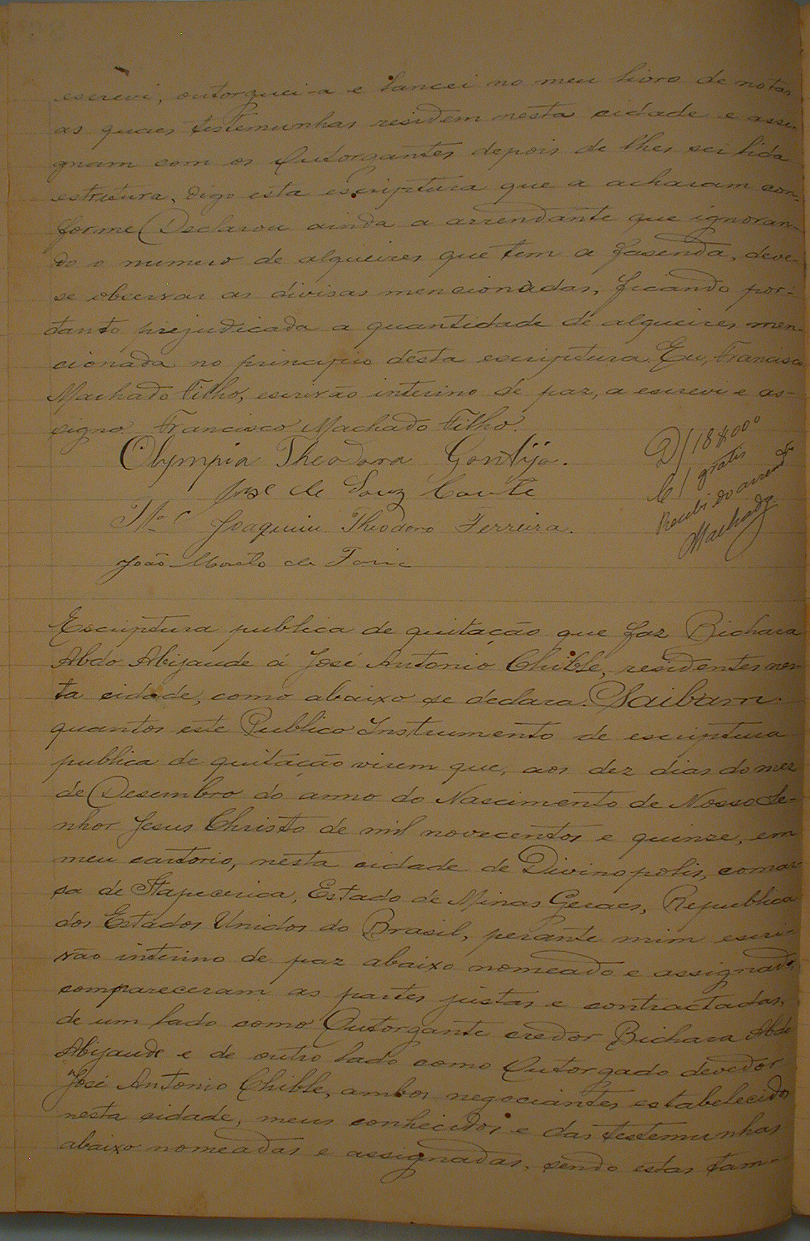 escrevi, outorguei-a e lancei no meu livro de notas
as quaes testemunhas residem nesta cidade e assi-
gnam com os Outorgantes depois de lhes ser lida
estrictura, digo esta escriptura que a acharam con-
forme. Declarou ainda a arrendante que ignoran-
do o numero de alqueires que tem a fasenda, deve-
se observar as divisas mencionadas, ficando por-
tanto prejudicada a quantidade de alqueires men-
cionada no principio desta escriptura. Eu, Francisco
Machado Filho, escrivão interino de paz, a escrevi e as-
signo. Francisco Machado Filho.
Olympia Theodora Gontijo.
José de Souz
Joaquim Theodoro Ferreira.
João de Faria
D/ 18$000
C/ gratis
Recebi do
Machado
Escriptura publica de quitação que faz Bichara
Abdo Abijaude á José Antonio Chible, residentes nes-
ta cidade, como abaixo se declara. Saibam
quantos este Publico Instrumento de escriptura
publica de quitação virem que, aos dez dias do mez
de Desembro do anno do Nascimento de Nosso Se-
nhor Jesus Christo de mil novecentos e quinze, em
meu cartorio, nesta cidade de Divinopolis, comar-
ca de Itapecerica, Estado de Minas Geraes, Republica
dos Estados Unidos do Brasil, perante mim escri-
vão interino de paz abaixo nomeado e assignado,
compareceram as partes justas e contractadas,
de um lado como Outorgante credor Bichara Abdo
Abijaude e de outro lado como Outorgado devedor
José Antonio Chible, ambos negociantes estabelecidos
nesta cidade, meus conhecidos e das testemunhas
abaixo nomeadas e assignadas, sendo estas tam-